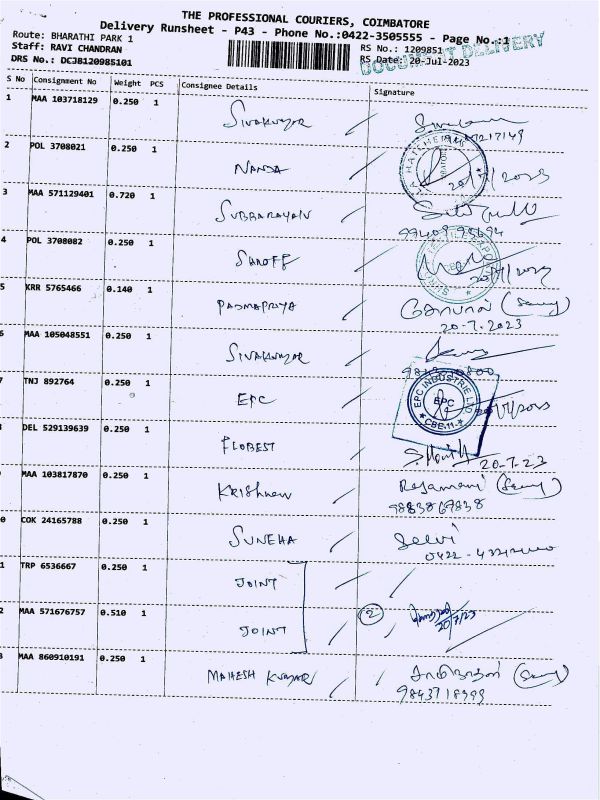 THE PROFESSIONAL COURIERS, COIMBATORE
Delivery Runsheet - P43 - Phone No.:0422-3505555 - Page No.:1
Route: BHARATHI PARK 1
RS No.: 1209851
Staff: RAVI CHANDRAN
RS Date: 20-Jul-2023
DRS No.: DCJB120985101
DOCUMENT DELIVERY
S No Consignment No Weight PCS Consignee Details Signature
1 MAA 103718129 0.250 1 SIVAKUMAR
2 POL 3708021 0.250 1 NANDA
3 MAA 571129401 0.720 1 SUBBARAYAN
4 POL 3708082 0.250 1 SHROFF
5 KRR 5765466 0.140 1 PADMAPRIYA கோபால்
20-7-2023
6 MAA 105048551 0.250 1 SIVAKUMAR
TNJ 892764 0.250 1 EPC EPC INDUSTRIE LTD EPC CBE-11
DEL 529139639 0.250 1 FLOBEST
20-7-23
MAA 103817870 0.250 1 Krishnan Rajamani
9883869838
0 COK 24165788 0.250 1 SUNEHA Selvi
1 TRP 6536667 0.250 1 JOINT
2 MAA 571676757 0.510 1 JOINT 2
3 MAA 860910191 0.250 1 MAHESH KUMAR
9843718999